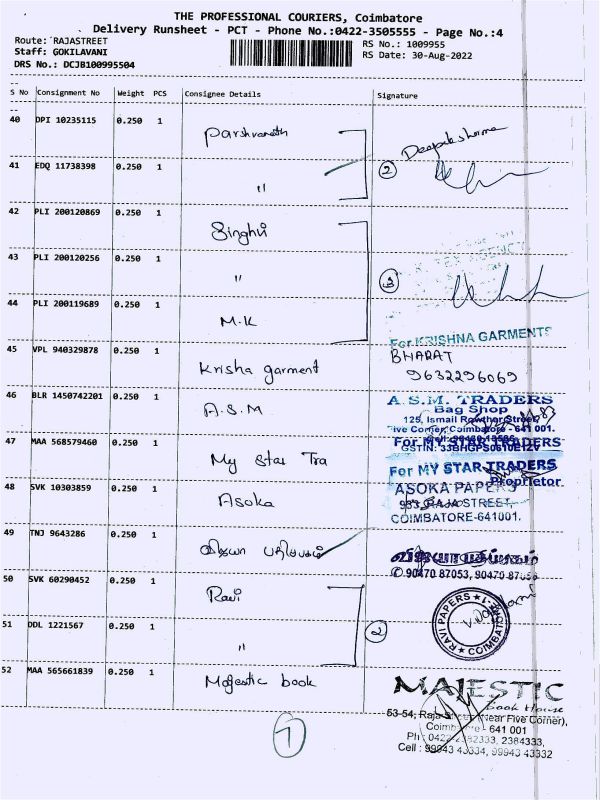 THE PROFESSIONAL COURIERS, Coimbatore
Delivery Runsheet - PCT - Phone No.:0422-3505555 - Page No.:4
Route: RAJASTREET
Staff: GOKILAVANI
DRS No.: DCJB100995504
RS No.: 1009955
RS Date: 30-Aug-2022
S No Consignment No Weight PCS Consignee Details Signature
40 DPI 10235115 0.250 1 Parshvanath
41 EDQ 11738398 0.250 1 "
2
42 PLI 200120869 0.250 1 Singhvi
43 PLI 200120256 0.250 1 "
3
44 PLI 200119689 0.250 1 M.K
For KRISHNA GARMENTS
45 VPL 940329878 0.250 1 Krisha garment
BHARAT
9632296069
46 BLR 1450742201 0.250 1 A.S.M
A.S.M. TRADERS
Bag Shop
125, Ismail Rowther Street,
ive Corner, Coimbatore - 641 001.
47 MAA 568579460 0.250 1 My Star Tra
For MY STAR TRADERS
For MY STAR TRADERS
Proprietor
48 SVK 10303859 0.250 1 Asoka
ASOKA PAPERS
933, RAJA STREET,
COIMBATORE-641001.
49 TNJ 9643286 0.250 1 விஜயா பதிப்பகம்
விஜயா பதிப்பகம்
90470 87053, 90470 87056
50 SVK 60290452 0.250 1 Ravi
RAVI PAPERS
51 DDL 1221567 0.250 1 "
2
52 MAA 565661839 0.250 1 Majestic book
MAJESTIC
Book House
53-54, Raja Street (Near Five Corner),
Coimbatore - 641 001
2384333,
Cell : 99943 43334, 99943 43332
7